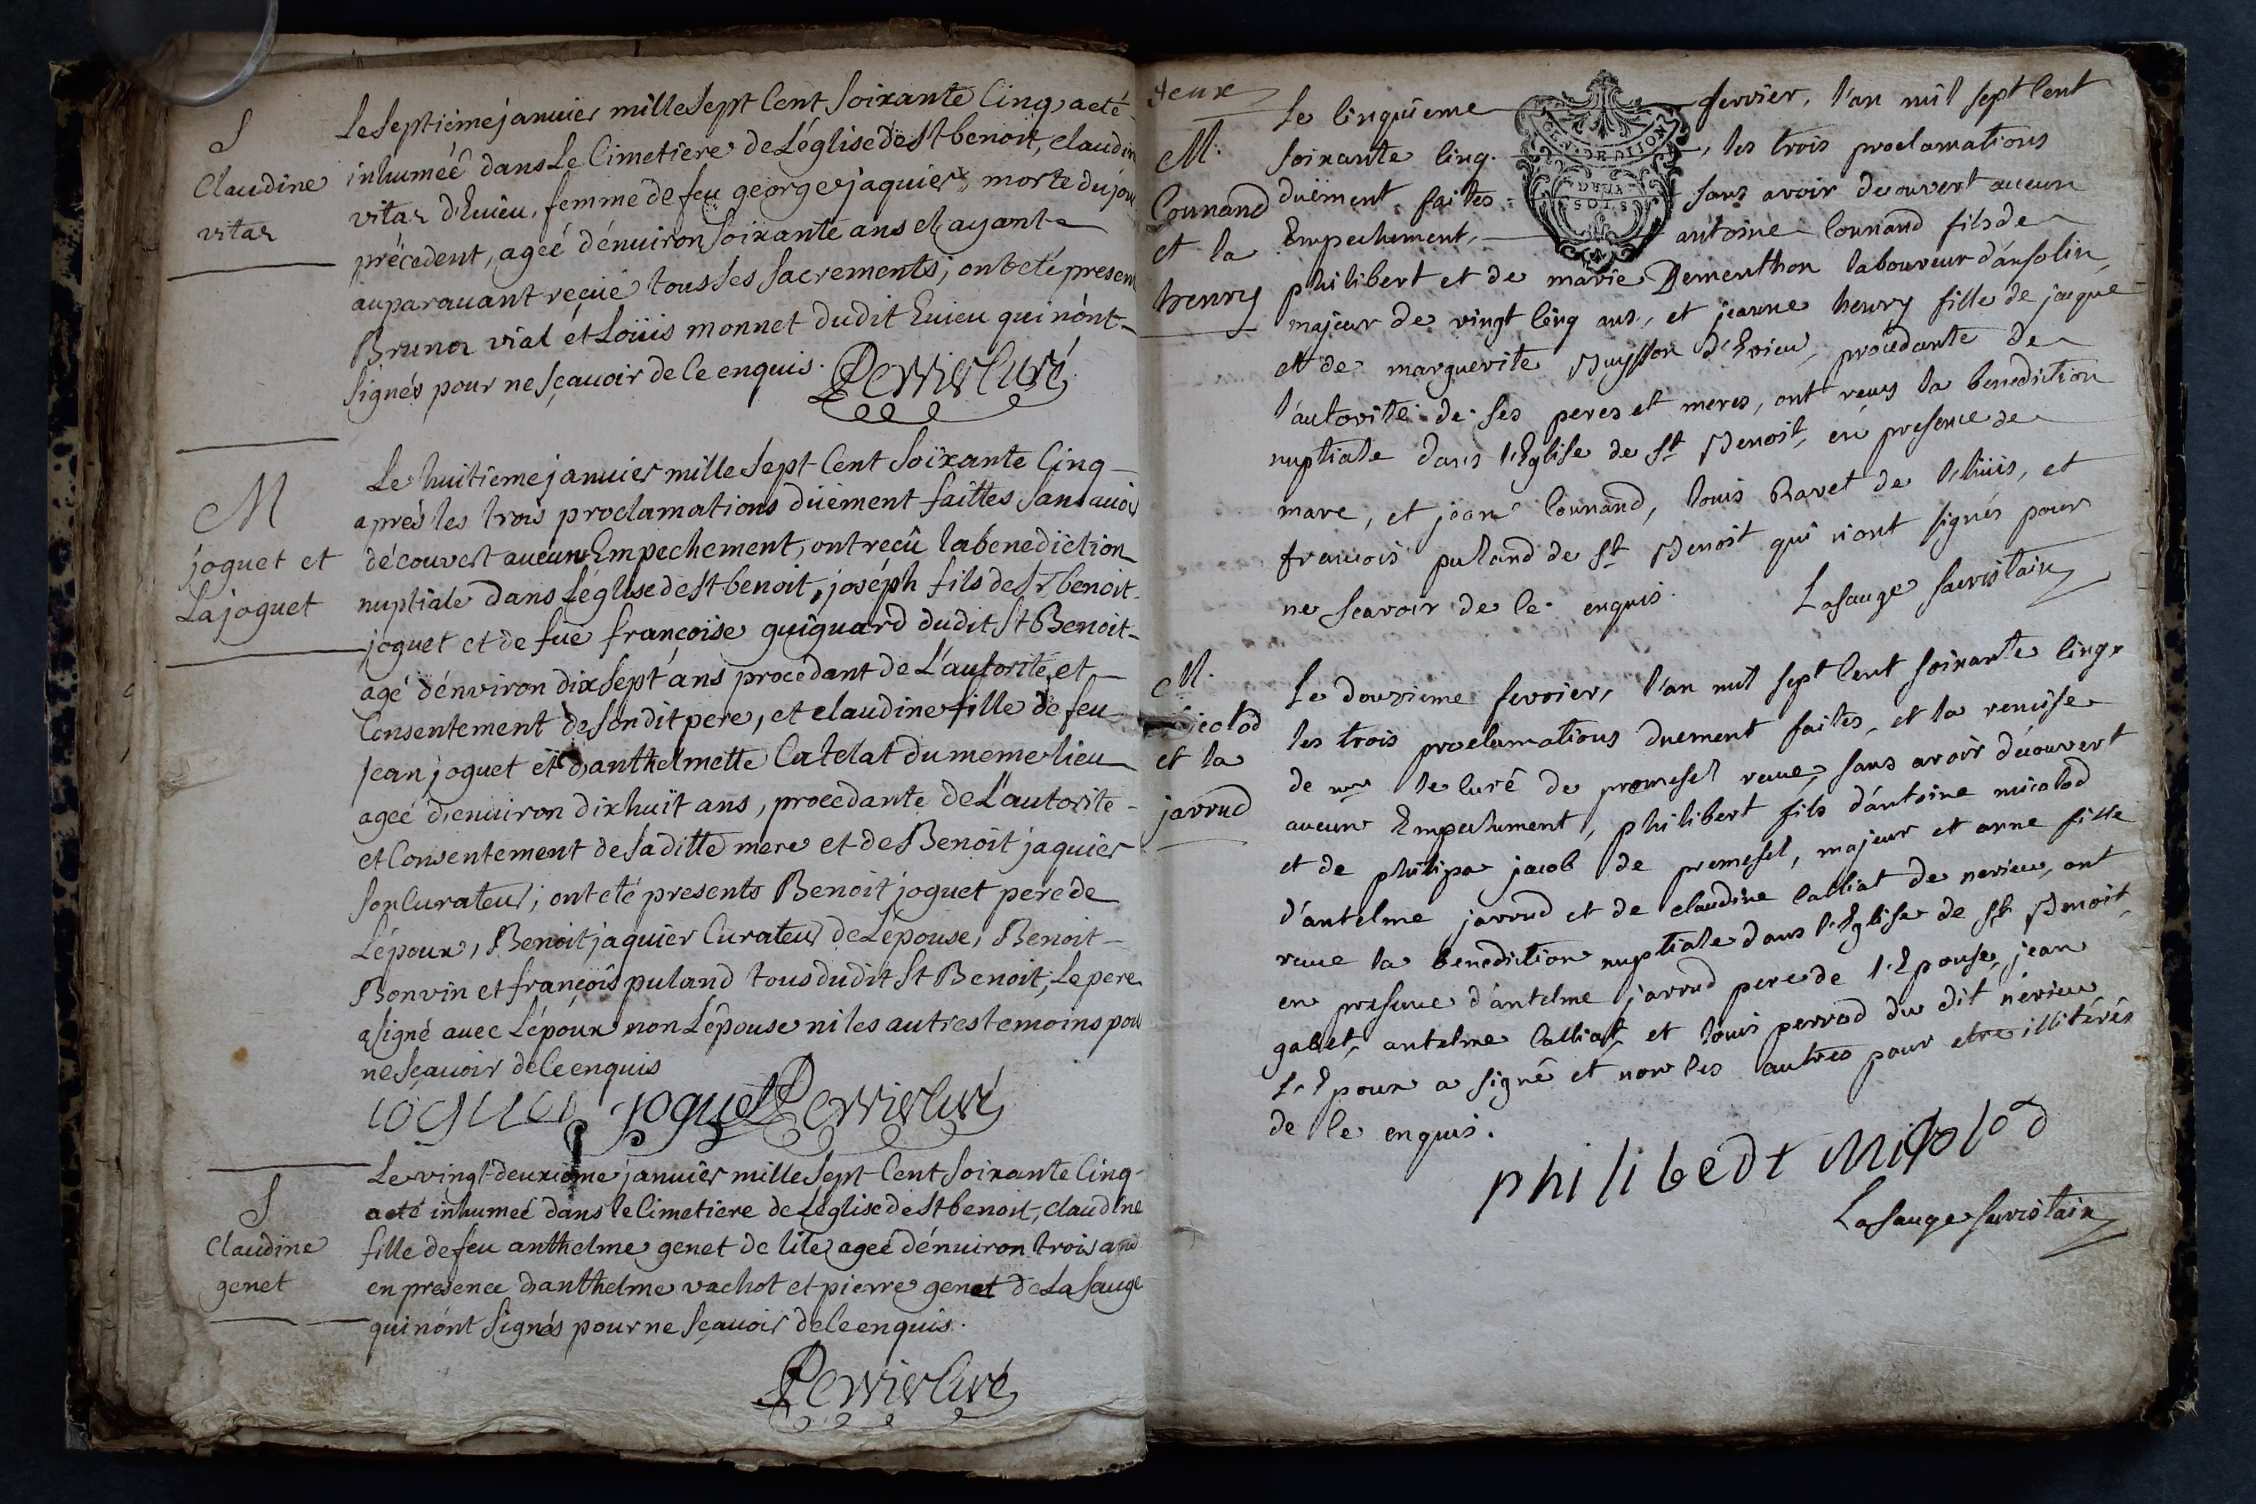 S
Claudine
vitar
Le septiéme janvier mille Sept Cent Soixante Cinq a eté
inhumeé dans Le Cimetiere de L'église de St benoit, claudine
vitar d'Evieu, femme de feu george jaquier, morte du jour
précedent, ageé d'environ Soixante ans et ayant
auparavant reçüe tous les Sacrements; ont eté present
Bruno vial et Loüis monnet dudit Evieu qui n'ont
Signés pour ne sçavoir de ce enquis. Perrier Curé
M
joguet et
La joguet
Le huitiéme janvier mille Sept Cent Soixante Cinq
aprés les trois proclamations düement faittes Sans avoir
découvert aucun Empechement, ont reçû la benediction
nuptiale dans L'église de St benoit, joséph fils de Sr benoit
joguet et de fue françoise guiguard dudit St Benoit
agé d'environ dix sept ans procedant de L'autorité et
Consentement de Sondit pere, et claudine fille de feu
Jean joguet et d'anthelmette Catelat du meme lieu
ageé d'environ dix huit ans, procedante de L'autorité
et Consentement de Sa ditte mere et de Benoit jaquier
Son Curateur; ont eté presents Benoit joguet pere de
L'époux, Benoit jaquier Curateur de L'épouse, Benoit
Bonvin et françois puland tous dudit St Benoit, Le pere
a signé avec L'époux non L'épouse ni les autres temoins pour
ne sçavoir de ce enquis
ioguet joguet Perrier Curé
S
Claudine
genet
Le vingt deuxiéme janvier mille Sept Cent Soixante Cinq
a eté inhumeé dans le Cimetiere de L'église de St benoit, claudine
fille de feu anthelme genet de lile ageé d'environ trois ans
en presence d'anthelme vachot et pierre genet de La Sauge
qui n'ont Signés pour ne Sçavoir de ce enquis.
Perrier Curé
deux
M.
Counand
et la
henry
Le Cinquieme fevrier, l'an mil sept Cent
GEN. DE DIJON
DEUX
SOLS
soixante Cinq, les trois proclamations
duëment faites sans avoir decouvert aucun
Empechement, antoine Counand fils de
philibert et de marie Dementhon laboureur d'ansolin,
majeur de vingt Cinq ans, et jeanne henry fille de jacque
et de marguerite Buysson d'Evieu, procedante de
l'autorité de ses peres et meres, ont reçus la benediction
nuptiale dans l'Eglise de St Benoit, en presence de
marc, et jean Counand, louis Ravet de Lhuis, et
francois puland de St Benoit qui n'ont signés pour
ne scavoir de ce enquis. Lasauge sacristain
M.
micolod
et la
jarrud
Le douzieme fevrier, l'an mil sept Cent soixante Cinq,
les trois proclamations duement faites, et la remise
de mr le Curé de premesel recue, sans avoir decouvert
aucun Empechement, philibert fils d'antoine micolod
et de philipa jacob de premesel, majeur et anne fille
d'antelme jarrud et de claudine Calliat de nerieu, ont
recue la benediction nuptiale dans l'Eglise de St Benoit,
en presence d'antelme jarrud pere de l'Epouse, jean
gallet, antelme Calliat, et louis perrod du dit nerieu
L'Epoux a signé et non les autres pour etre illitérés
de ce enquis.
philibedt Micolod
Lasauge sacristain